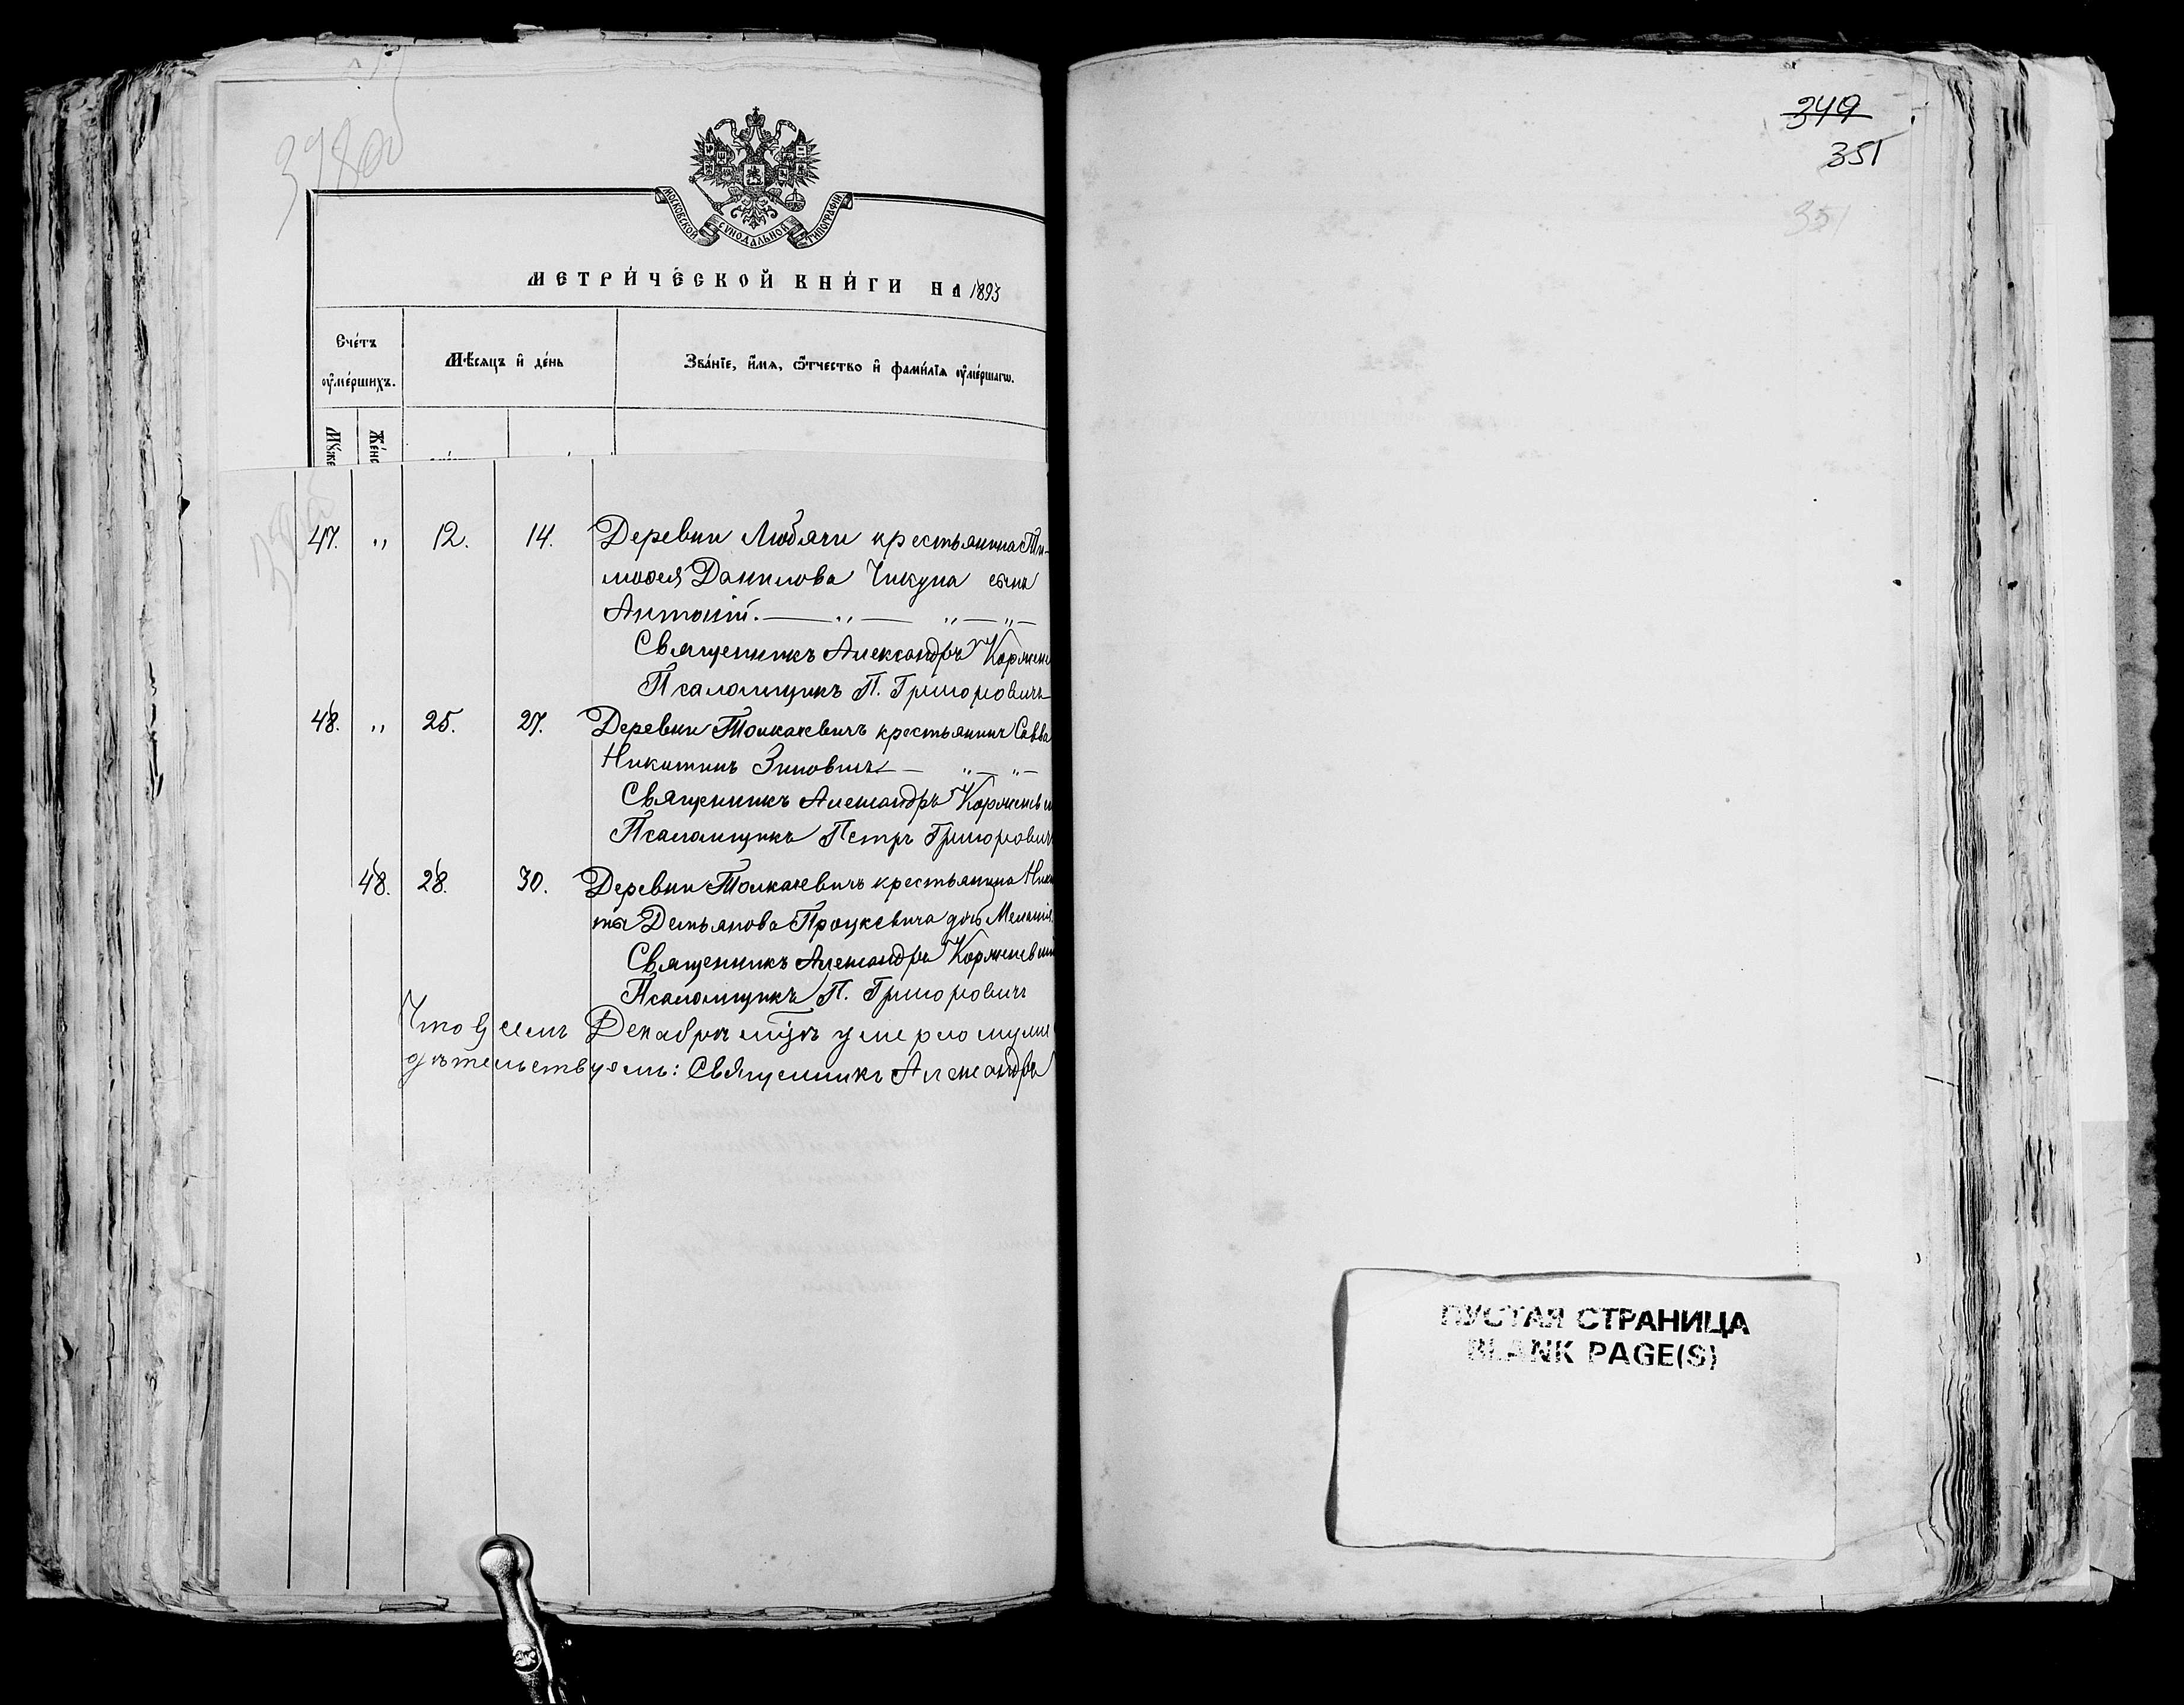 МОСКОВСКОЙ СѴНОДАЛЬНОЙ ТИПОГРАФІИ
МЕТРИ́ЧЕСКОЙ КНИ́ГИ НА 1893
Сче́тъ ᲂу҆ме́ршихъ.
Мѣ́сяцъ и҆ де́нь
Зва́нїе, и҆́мѧ, ѻ҆́тчество и҆ фами́лїѧ ᲂу҆ме́ршагѡ.
47. „ 12. 14. Деревни Любячи крестьянина Ти-
моѳея Данилова Чикуна сынъ
Антоній. — „ — „ — „ —
Священникъ Александръ Коржене
Псаломщикъ П. Григоровичъ
48. „ 25. 27. Деревни Толкачевичъ крестьянинъ Савва
Никитинъ Зиновичъ — „ — „ —
Священникъ Александръ Корженев
Псаломщикъ Петръ Григоровичъ
48. 28. 30. Деревни Толкачевичъ крестьянина Ники
ты Демьянова Процкевича дочь Меланія
Священникъ Александръ Корженевскій
Псаломщикъ П. Григоровичъ
Что въ семъ Декабрѣ м-цѣ умерло муже
дѣтельствуемъ: Священникъ Александръ
349
351
351
ПУСТАЯ СТРАНИЦА
BLANK PAGE(S)